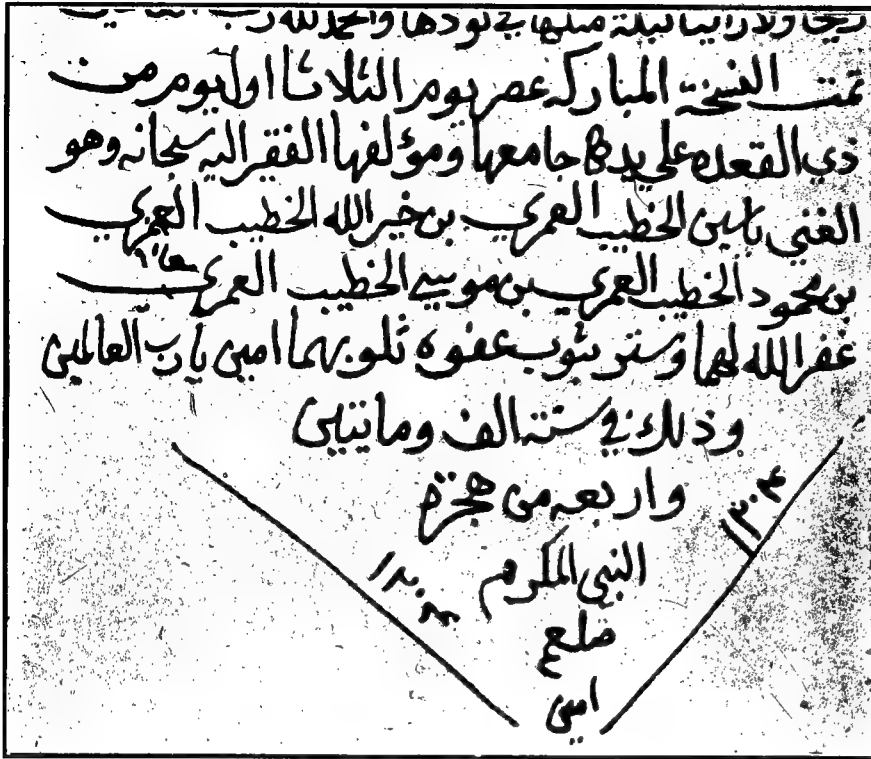 ريحا ولا راينا ليلة مثلها في نودها والحمد لله رب
تمت النسخة المباركه عصر يوم الثلاثا اول يوم من
ذي القعده على يد جامعها ومؤلفها الفقر اليه سبحانه وهو
الغني ياسين الخطيب العمري بن خير الله الخطيب العمري
بن محمود الخطيب العمري بن موسى الخطيب العمري
غفر الله لهما وستر بثوب عفوه بهما امين يا رب العالمين
وذلك في سنة الف وماتيتن
واربعه من هجرة
النبي المكرم
صلعم
امين
١٢٠٤
١٢٠٤